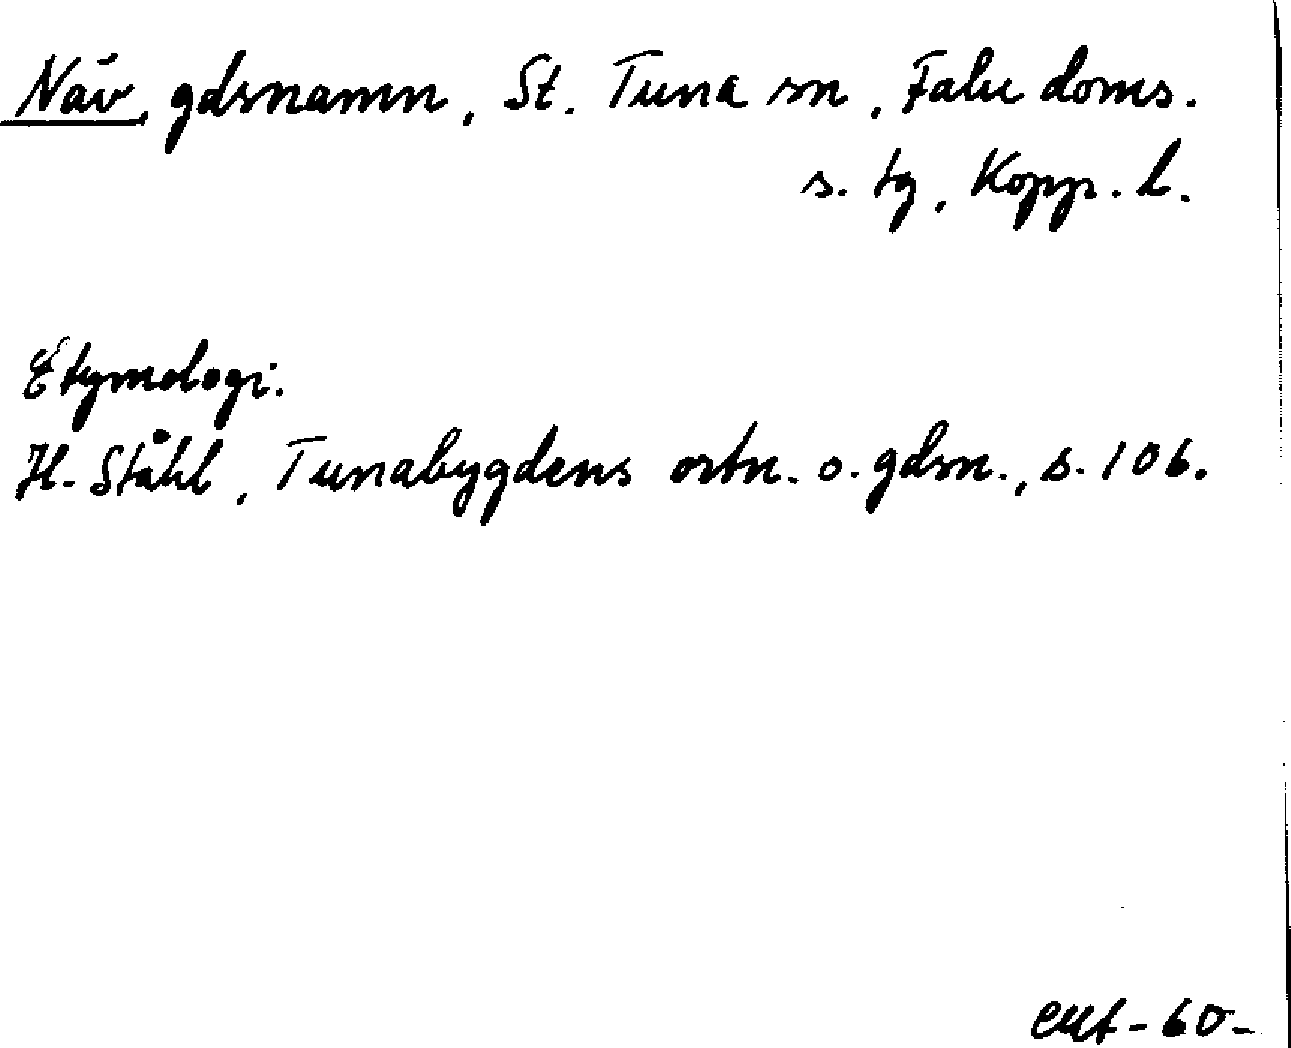 Näv, gdsnamn, St. Tuna sn, Falu doms.
s. tg, Kopp. l.
Etymologi.
H. Ståhl, Tunabygdens ortn. o. gdsn., s. 106.
60-